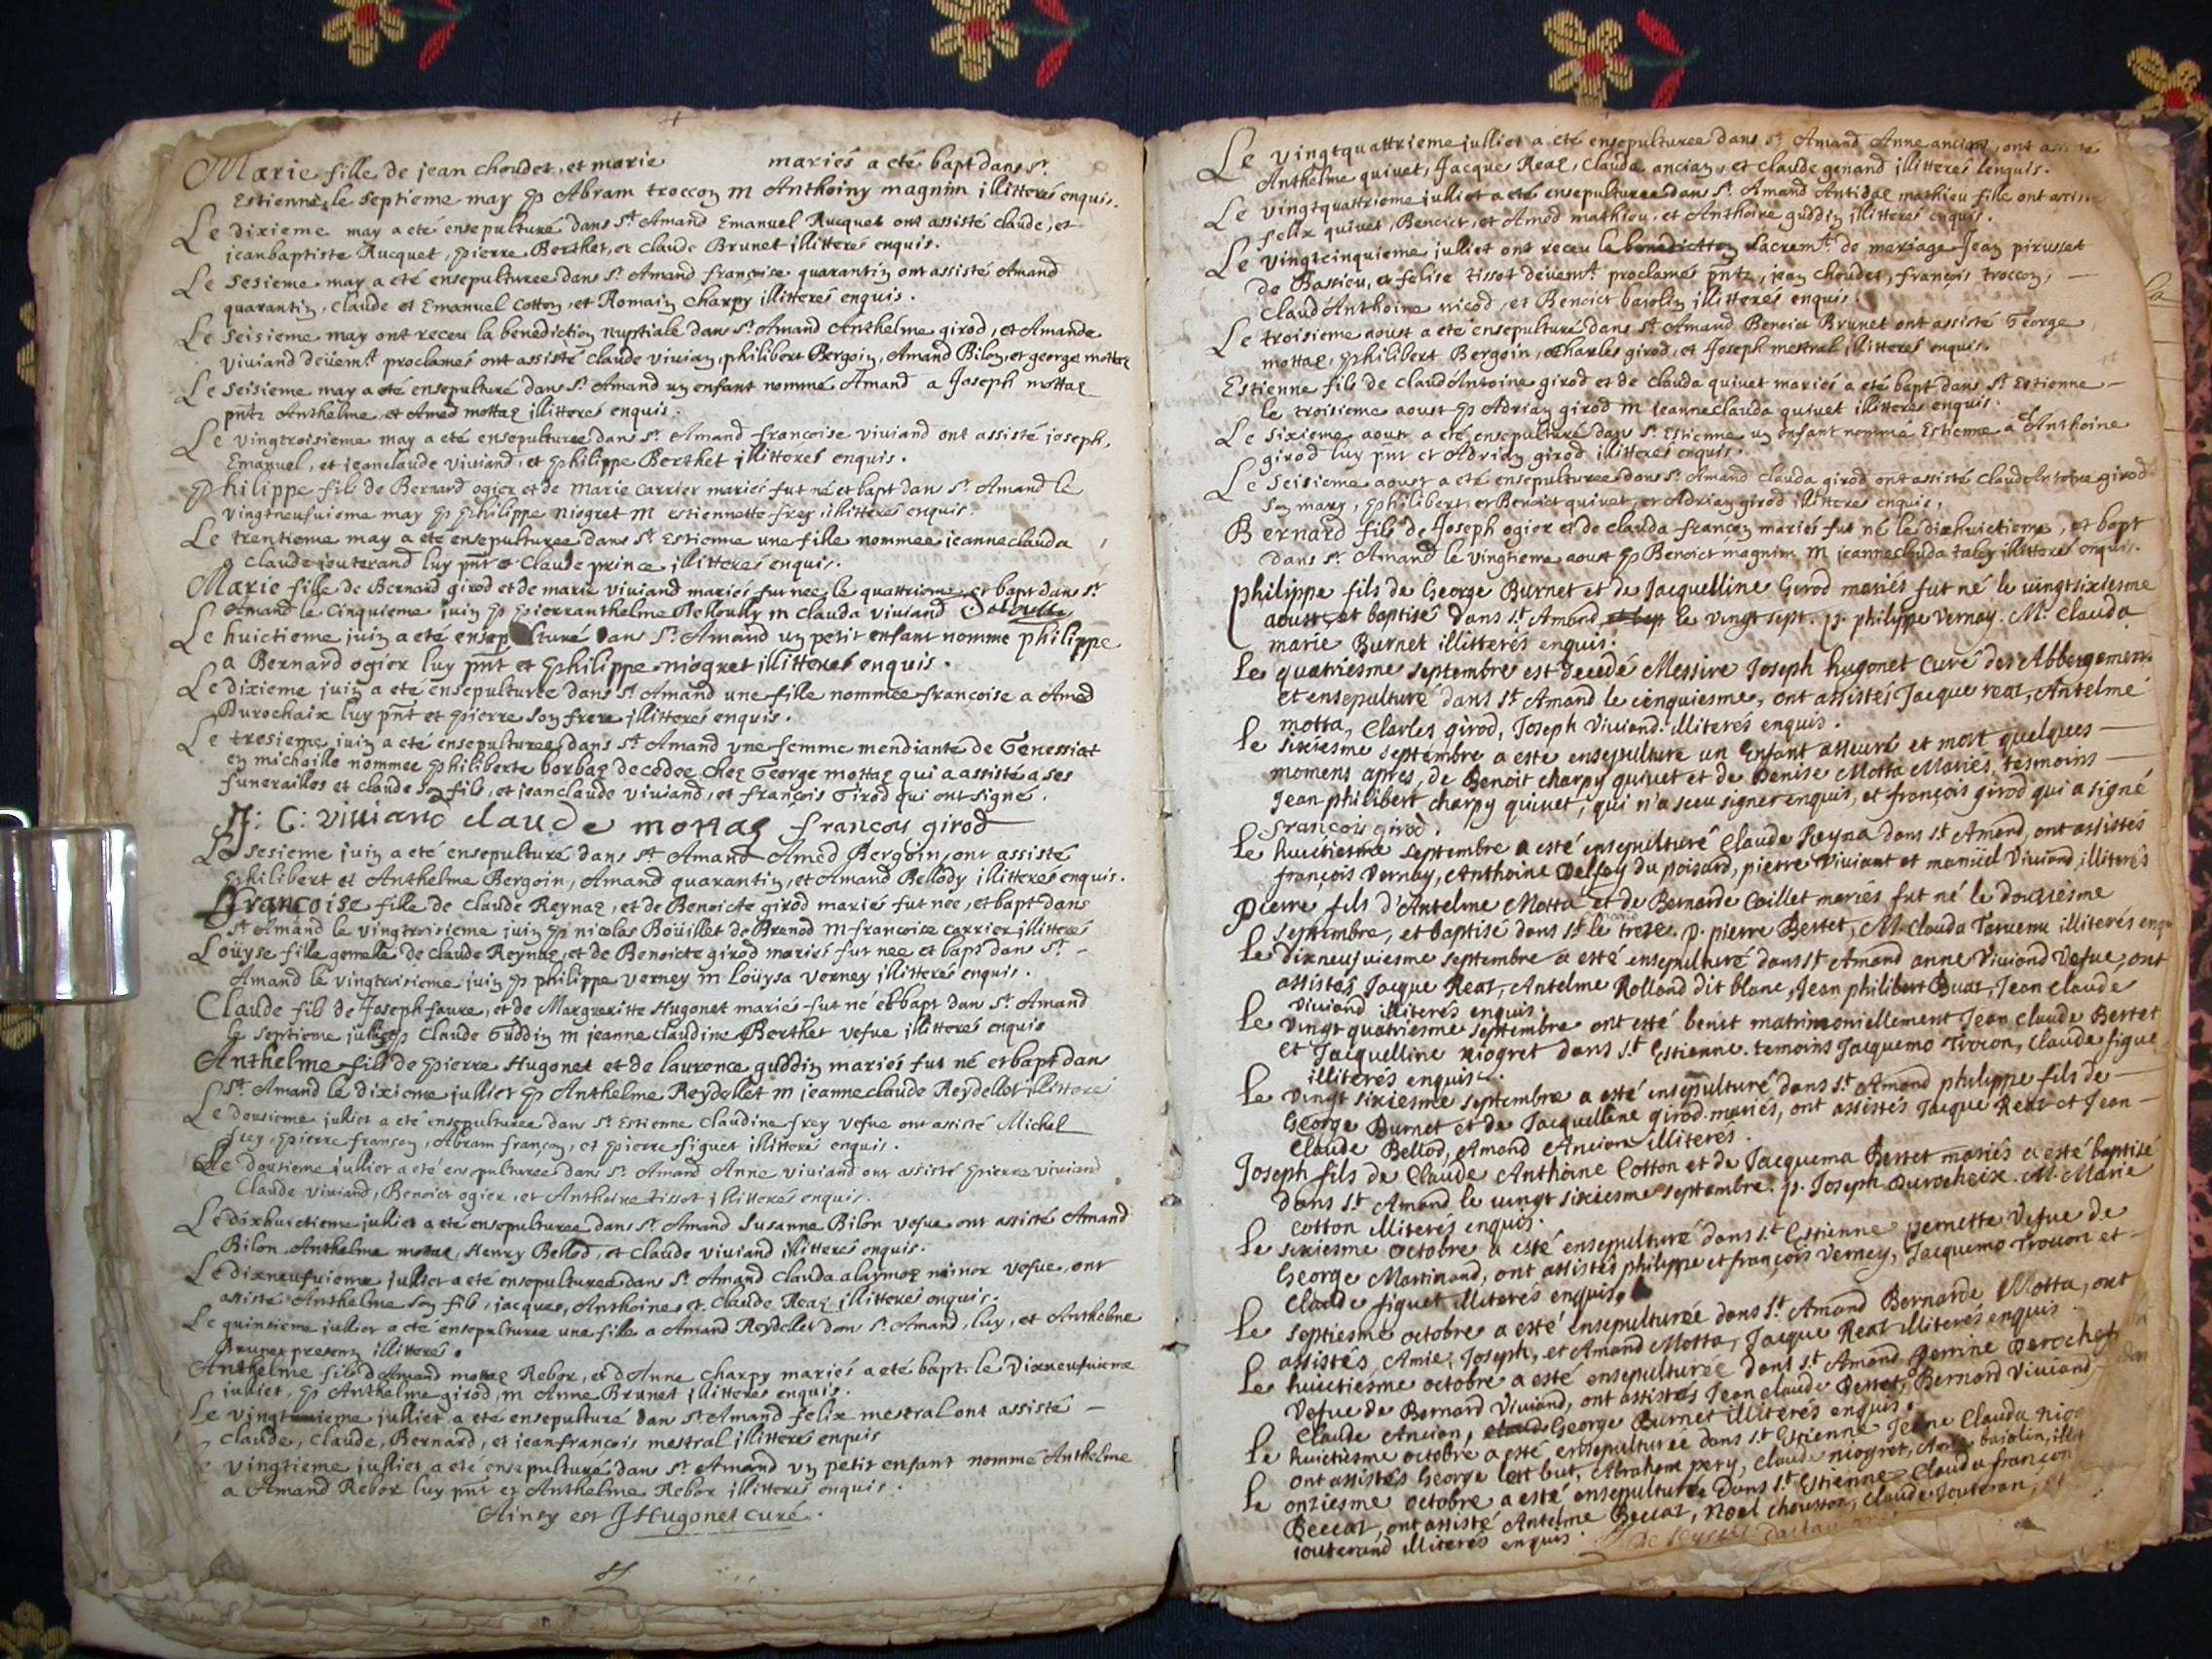 Marie fille de jean choudet, et marie mariés a eté bapt dans st
Estienne, le septieme may p Abram troccon m Anthoiny magnim illitterés enquis.
Le dixieme may a eté ensepulturé dans St Amand Emanuel Rucquet ont assisté claude, et
jeanbaptiste Rucquet, pierre Berthet, et claude Brunet illitteres enquis.
Le sesieme may a eté ensepulturee dans st Amand françoise quarantin ont assisté Amand
quarantin, claude et Emanuel cotton, et Romain charpy illitterés enquis.
Le seisieme may ont receu la benediction nuptiale dans st Amand Anthelme girod, et Amande
viviand deüemt proclamés ont assisté claude vivian, philibert Bergoin, Amand Bilon, et george mottaz
Le seisieme may a eté ensepulturé dans st Amand un enfant nommé Amand a Joseph mottaz
pntz Anthelme, et Amed mottaz illitteres enquis.
Le vingtroisieme may a eté ensepulturee dans st Amand francoise viviand ont assisté joseph,
Emanuel, et jeanclaude viviand, et philippe Berthet illitteres enquis.
Philippe fils de Bernard ogier et de Marie carrier mariés fut né et bapt dans st Amand le
vingtneufuieme may p philippe niogret m estiennette frey illitteres enquis.
Le trentieme may a eté ensepulturee dans st Estienne une fille nommee jeanneclauda
a claude jouterand luy pnt et claude prince illitteres enquis.
Marie fille de Bernard girod et de marie viviand mariés fut nee le quattrieme, et bapt dans st
Amand le cinquieme juin p pierranthelme m clauda viviand
Le huictieme juin a eté ensepulturé dans st Amand un petit enfant nomme philippe
a Bernard ogier luy pnt et philippe niogret illitteres enquis.
Le dixieme juin a eté ensepulturée dans st Amand une fille nommée françoise a Amed
Durochaix luy pnt et pierre son frere illitterés enquis.
Le tresieme juin a eté ensepulturee dans st Amand une femme mendiante de Genessiat
en michaille nommee philiberte borbaz decedee chez George mottaz qui a assisté a ses
funerailles et claude son fils, et jeanclaude viviand, et françois Girod qui ont signé.
J: C: viuiand claude mottaz francoy girod
Le sesieme juin a eté ensepulturé dans st Amand Amed Bergoin, ont assisté
philibert et Anthelme Bergoin, Amand quarantin, et Amand Bellody illitteres enquis.
Françoise fille de claude Reynaz, et de Benoicte girod mariés fut nee, et bapt dans
st Amand le vingtroisieme juin p nicolas Boüillet de Brenod m francoise carrier illitteres
Loüyse fille gemelle de claude Reynaz, et de Benoicte girod mariés fut nee et bapt dans st
Amand le vingtroisieme juin p philippe verney m loüysa verney illitterés enquis.
Claude fils de Joseph faure, et de Margueritte Hugonet mariés fut né et bapt dans st Amand
le septieme julliet p Claude Guddin m jeanne claudine Berthet vefue illitteres enquis
Anthelme fils de pierre Hugonet et de laurence guddin mariés fut né et bapt dans
St Amand le dixieme julliet p Anthelme Reydellet m jeanneclaude Reydellet illitteré
Le dousieme julliet a eté ensepulturee dans st Estienne Claudine frey vefue ont assisté Michel
frey, pierre françon, Abram françon, et pierre figuet illitteres enquis.
Le dousieme julliet a eté ensepulturee dans st Amand Anne viviand ont assisté pierre viviand
Claude viviand, Benoict ogier, et Anthoine tissot illitterés enquis.
Le dixhuictieme julliet a eté ensepulturee dans st Amand Susanne Bilon vefue ont assisté Amand
Bilon Anthelme mottaz, Henry Bellod, et claude viviand illitterés enquis.
Le dixneufuieme julliet a eté ensepulturee dans st Amand Clauda alaymoz vefue, ont
assisté Anthelme son fils, jacques, Anthoine, et claude Reaz illitterés enquis.
Le quinsieme julliet a eté ensepulturee une fille a Amand Reydellet dans st Amand, luy, et Anthelme
Brunet presents illitteres.
Anthelme fils d'Amand mottaz Rebox, et d'Anne charpy mariés a eté bapt. le dixneufuieme
julliet, p Anthelme girod, m Anne Brunet illitteres enquis.
Le vingtieme julliet a eté ensepulturé dans st Amand felix mestral ont assisté
claude, claude, Bernard, et jeanfrançois mestral illitterés enquis
Le vingtieme julliet a eté ensepulturé dans st Amand un petit enfant nommé Anthelme
a Amand Rebox luy pnt et Anthelme Rebox illitteres enquis.
Ainsy est J Hugonet curé.
Le vingtquattrieme julliet a eté ensepulturee dans st Amand Anne ancian, ont assisté
Anthelme quivet, Jacque Reaz, Clauda ancian, et claude genand illitterés enquis.
Le vingtquattrieme julliet a eté ensepulturee dans st Amand Antide mathieu fille ont
felix quivet, Benoict, et Amed mathieu, et Anthoine guddin illitterés enquis.
Le vingtcinquieme julliet ont receu le benediction sacremt de mariage Jean pirusset
de Bassieu, et felise tissot deüemt proclamés pntz, jean choudet, françois troccon,
claud'Anthoine nicod, et Benoict baiolin illitterés enquis
Le troisieme aoust a eté ensepulturé dans st Amand Benoict Brunet ont assisté George
mottaz, philibert Bergoin, charles girod, et Joseph mestral illitteres enquis.
Estienne fils de claud'Antoine girod et de clauda quivet mariés a eté bapt dans st Estienne
le troisieme aoust p Adrian girod m jeanneclauda quivet illitteres enquis.
Le sixieme aoust a eté ensepulturé dans st Estienne un enfant nommé Estienne a Anthoine
girod luy pnt et Adrian girod illitterés enquis.
Le seisieme aoust a eté ensepulturee dans st Amand clauda girod ont assisté claud'Antoine girod
son mary, philibert, et Benoict quivet, et Adrian girod illitteres enquis,
Bernard fils de Joseph ogier et de clauda françon mariés fut né le dixhuictieme, et bapt
dans st Amand le vingtieme aoust p Benoict magnim m jeanneclauda illitteres enquis.
philippe fils de George Burnet et de Jacquelline Girod mariés fut né le vingtsixiesme
aoust, et baptisé dans st Amand et bap le vingt sept. p. philippe Vernay. M. Clauda
marie Burnet illitterés enquis.
le quatriesme septembre est decedé Messire Joseph hugonet Curé des Abbergemens
et ensepulturé dans st Amand le cinquiesme, ont assistés Jacque reaz, Antelme
motta, Charles girod, Joseph Viviand illiterés enquis.
le sixiesme septembre a esté ensepulturé un Enfant asseuré et mort quelques
momens apres, de Benoit charpy quivet et de Denise Motta Mariés, tesmoins
Jean philibert charpy quivet, qui n'a sceu signer enquis, et françois girod qui a signé
françois girod.
le huictiesme septembre a esté ensepulturé Claude Reyna dans st Amand, ont assistés
françois Vernay, Anthoine Delfay du poisard, pierre viviant et manüel Viviand, illiterés
pierre fils d'Antelme Motta et de Bernarde Caillet mariés fut né le douziesme
septembre, et baptisé dans st le treze. p. pierre Bertet, M. Clauda Tavuenu illiterés enqu
le dixneufuiesme septembre a esté ensepulturé dans st Amand anne Viviand Vefue, ont
assistés Jacque Reaz, Antelme Rolland dit blanc, Jean philibert Buaz, Jean claude
Viviand illiterés enquis
le vingt quatriesme septembre ont esté benit matrimoniellement Jean claude Bertet
et Jacquelline niogret dans st Estienne. temoins Jacquemo Trocon, claude figue
illiterés enquis.
le vingt sixiesme septembre a esté ensepulturé dans st Amand philippe fils de
George Burnet et de Jacquelline girod mariés, ont assistés Jacque Reaz et Jean
Claude Bellod, Amand Ancian illiterés.
Joseph fils de Claude Anthoine Cotton et de Jacquema Bertet mariés a esté baptisé
dans st Amand le vingt sixiesme septembre. p. Joseph Durocheix. M. Marie
Cotton illiterés enquis.
le sixiesme octobre a esté ensepulturé dans st Estienne pernette Vefue de
George Martinand, ont assistés philippe et françois Verney, Jacquemo Trocon et
Claude figuet illiterés enquis.
le septiesme octobre a esté ensepulturée dans st Amand Bernarde Motta, ont
assistés Amie, Joseph, et Amand Motta, Jacque Reaz illiterés enquis.
le huictiesme octobre a esté ensepulturée dans st Amand perrine Deroche
Vefue de Bernard Viviand, ont assistés Jean claude Bertet, Bernard Viviand,
Claude Ancian, George Burnet illiterés enquis.
le huictiesme octobre a esté ensepulturée dans st Estienne Jeane Clauda nio
ont assistés George, Abraham pery, claude niogret, baiolin,
le onziesme octobre a esté ensepulturée dans st Estienne Clauda françon
Beccaz, ont assisté Antelme Beccaz, Noel Chousson, Claude Jouteran,
iouterand illiterés enquis.